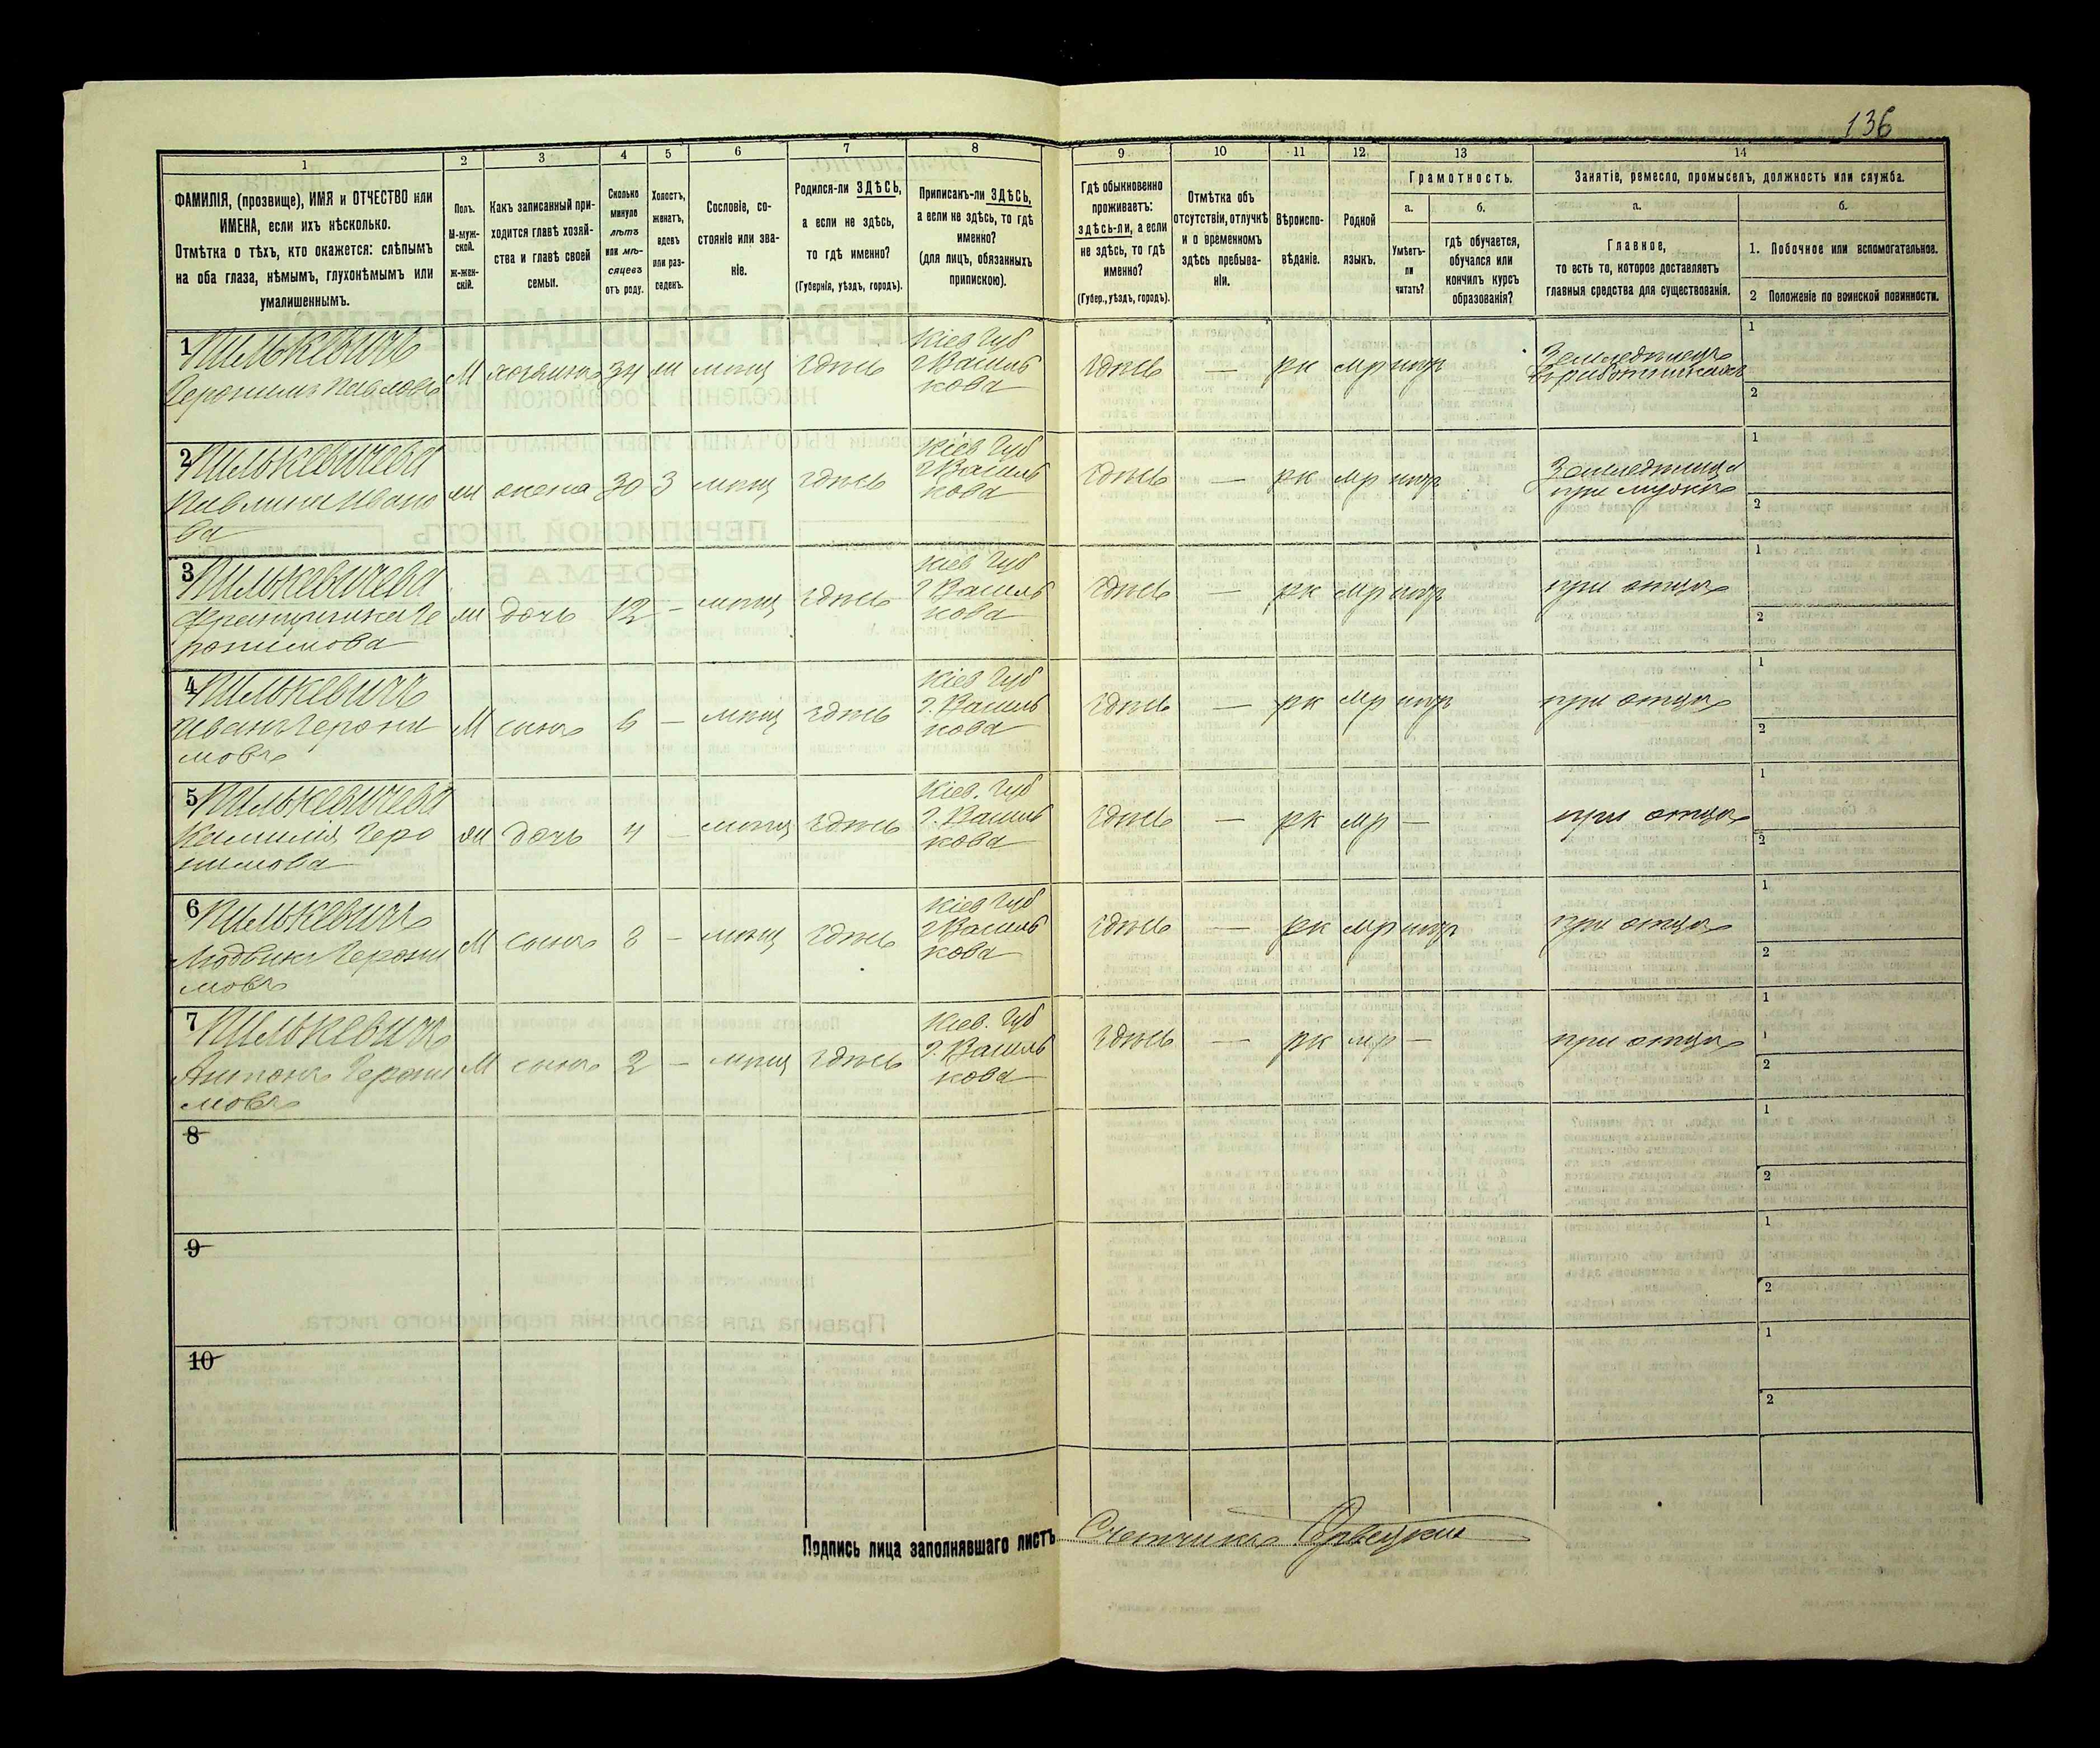 136
1 2 3 4 5 6 7 8 9 10 11 12 13 14
ФАМИЛІЯ, (прозвище), ИМЯ и ОТЧЕСТВО или
ИМЕНА, если ихъ нѣсколько.
Отмѣтка о тѣхъ, кто окажется: слѣпымъ
на оба глаза, нѣмымъ, глухонѣмымъ или
умалишеннымъ.
Полъ.
М-муж-
ской.
Ж-жен-
скій.
Какъ записанный при-
ходится главѣ хозяй-
ства и главѣ своей
семьи.
Сколько
минуло
лѣтъ
или мѣ-
сяцевъ
отъ роду.
Холостъ,
женатъ,
вдовъ
или раз-
веденъ.
Сословіе, со-
стояніе или зва-
ніе.
Родился-ли ЗДѢСЬ,
а если не здѣсь,
то гдѣ именно?
(Губернія, уѣздъ, городъ).
Приписанъ-ли ЗДѢСЬ,
а если не здѣсь, то гдѣ
именно?
(для лицъ, обязанныхъ
припискою).
Гдѣ обыкновенно
проживаетъ:
здѣсь-ли, а если
не здѣсь, то гдѣ
именно?
(Губер., уѣздъ, городъ).
Отмѣтка объ
отсутствіи, отлучкѣ
и о временномъ
здѣсь пребыва-
ніи.
Вѣроиспо-
вѣданіе.
Родной
языкъ.
Грамотность.
а.
Умѣетъ-
ли
читать?
б.
гдѣ обучается,
обучался или
кончилъ курсъ
образованія?
Занятіе, ремесло, промыселъ, должность или служба.
а.
Главное,
то есть то, которое доставляетъ
главныя средства для существованія.
б.
1. Побочное или вспомогательное.
2 Положеніе по воинской повинности.
1 Пилькевичъ
Геронимъ Павловъ
М хозяинъ 34 ж мѣщ здѣсь
Кіев Губ
г Василь
кова
здѣсь — рк пр нѣтъ
1
2
2 Пилькевичева
Павлина Ивано
ва
ж жена 30 З мѣщ здѣсь
Кіев Губ
г Василь
кова
здѣсь — рк
при мужѣ
1
2
3 Пилькевичева
Францишка Ге
ронимова
ж дочь 12 — мѣщ здѣсь
Кіев Губ
г Василь
кова
здѣсь — рк
при отцѣ
1
2
4 Пилькевичъ
Иванъ Герони
мовъ
М сынъ 6 — мѣщ здѣсь
Кіев Губ
г. Василь
кова
здѣсь — рк
при отцѣ
1
2
5 Пилькевичева
Камилия Геро
нимова
ж дочь 4 — мѣщ здѣсь
Кіев. Губ
г. Василь
кова
здѣсь — рк —
при отцѣ
1
2
6 Пилькевичъ
Людвикъ Герони
мовъ
М сынъ 3 — мѣщ здѣсь
Кіев Губ
г Василь
кова
здѣсь — рк
при отцѣ
1
2
7 Пилькевичъ
Антонъ Герони
мовъ
М сынъ 2 — мѣщ здѣсь
Кіев. Губ
г. Василь
кова
здѣсь — рк —
при отцѣ
1
1
2
8
1
2
9
1
2
10
1
2
Подпись лица заполнявшаго листъ Счетчикъ